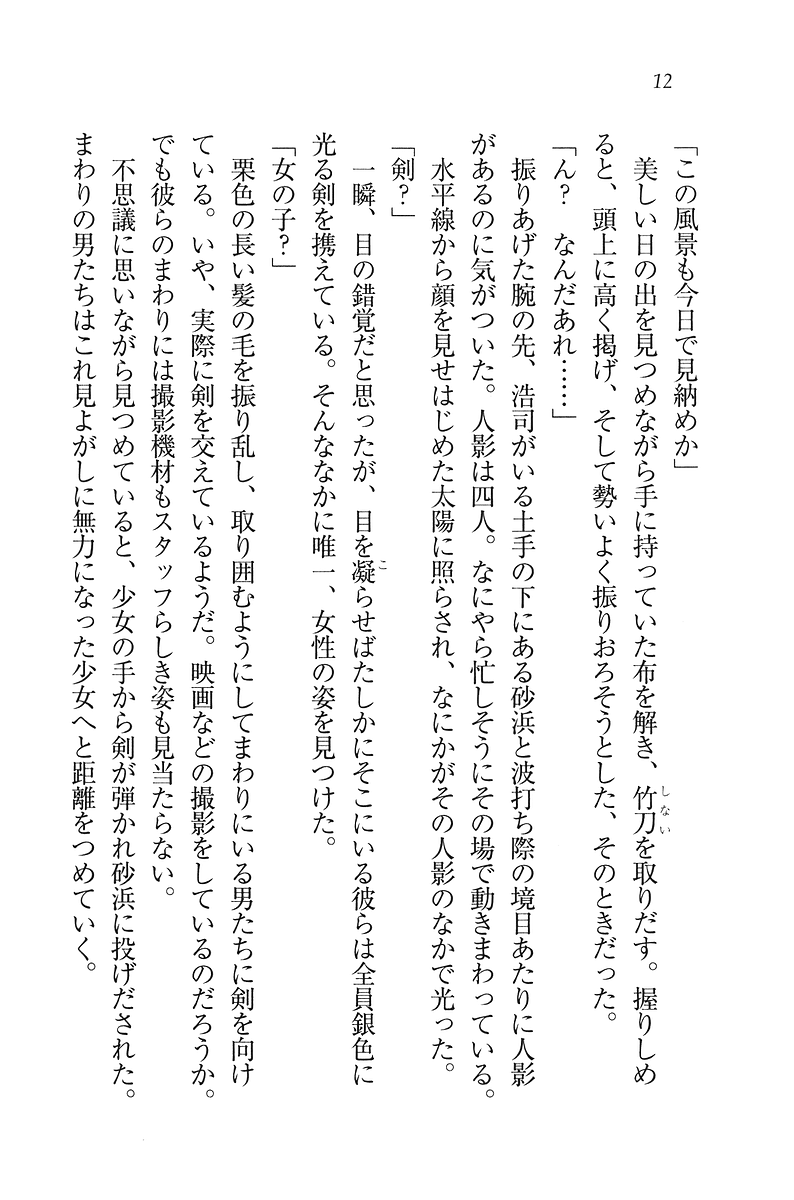 12
「この風景も今日で見納めか」
　美しい日の出を見つめながら手に持っていた布を解き、竹刀を取りだす。握りしめ
しない
ると、頭上に高く掲げ、そして勢いよく振りおろそうとした、そのときだった。
「ん？　なんだあれ……」
　振りあげた腕の先、浩司がいる土手の下にある砂浜と波打ち際の境目あたりに人影
があるのに気がついた。人影は四人。なにやら忙しそうにその場で動きまわっている。
　水平線から顔を見せはじめた太陽に照らされ、なにかがその人影のなかで光った。
「剣？」
　一瞬、目の錯覚だと思ったが、目を凝らせばたしかにそこにいる彼らは全員銀色に
こ
光る剣を携えている。そんななかに唯一、女性の姿を見つけた。
「女の子？」
　栗色の長い髪の毛を振り乱し、取り囲むようにしてまわりにいる男たちに剣を向け
ている。いや、実際に剣を交えているようだ。映画などの撮影をしているのだろうか。
でも彼らのまわりには撮影機材もスタッフらしき姿も見当たらない。
　不思議に思いながら見つめていると、少女の手から剣が弾かれ砂浜に投げだされた。
まわりの男たちはこれ見よがしに無力になった少女へと距離をつめていく。